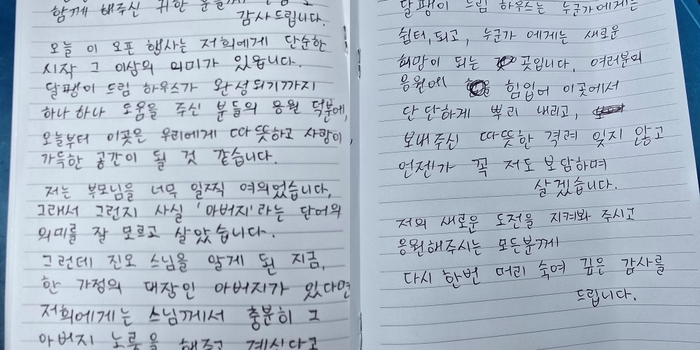 함께 해주신 귀한 분들께
감사드립니다.
오늘 이 오픈 행사는 저희에게 단순한
시작 그 이상의 의미가 있습니다.
달팽이 드림 하우스가 완성되기까지
하나하나 도움을 주신 분들의 응원 덕분에,
오늘부터 이곳은 우리에게 따뜻하고 사랑이
가득한 공간이 될 것 같습니다.
저는 부모님을 너무 일찍 여의었습니다,
그래서 그런지 사실 '아버지'라는 단어의
의미를 잘 모르고 살았습니다.
그런데 진오 스님을 알게 된 지금,
한 가정의 대장인 아버지가 있다면
저희에게는 스님께서 충분히 그
아버지 노릇을 해주고 계신다고
달팽이 드림 하우스는 누군가에게는
쉼터,되고, 누군가 에게는 새로운
희망이 되는 곳입니다, 여러분의
응원에 힘입어 이곳에서
단단하게 뿌리 내리고,
보내주신 따뜻한 격려 잊지 않고
언젠가 꼭 저도 보답하며
살겠습니다.
저의 새로운 도전을 지켜봐 주시고
응원해주시는 모든분께
다시 한번 머리 숙여 깊은 감사를
드립니다.